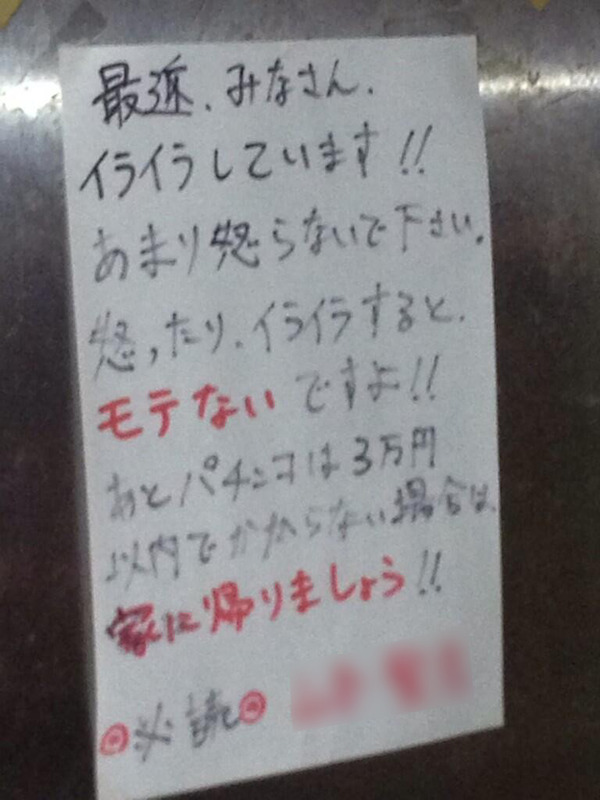 最近、みなさん、
イライラしています!!
あまり怒らないで下さい。
怒ったり、イライラすると、
モテないですよ!!
あとパチンコは3万円
以内でかからない場合は、
家に帰りましょう!!
◎必読◎